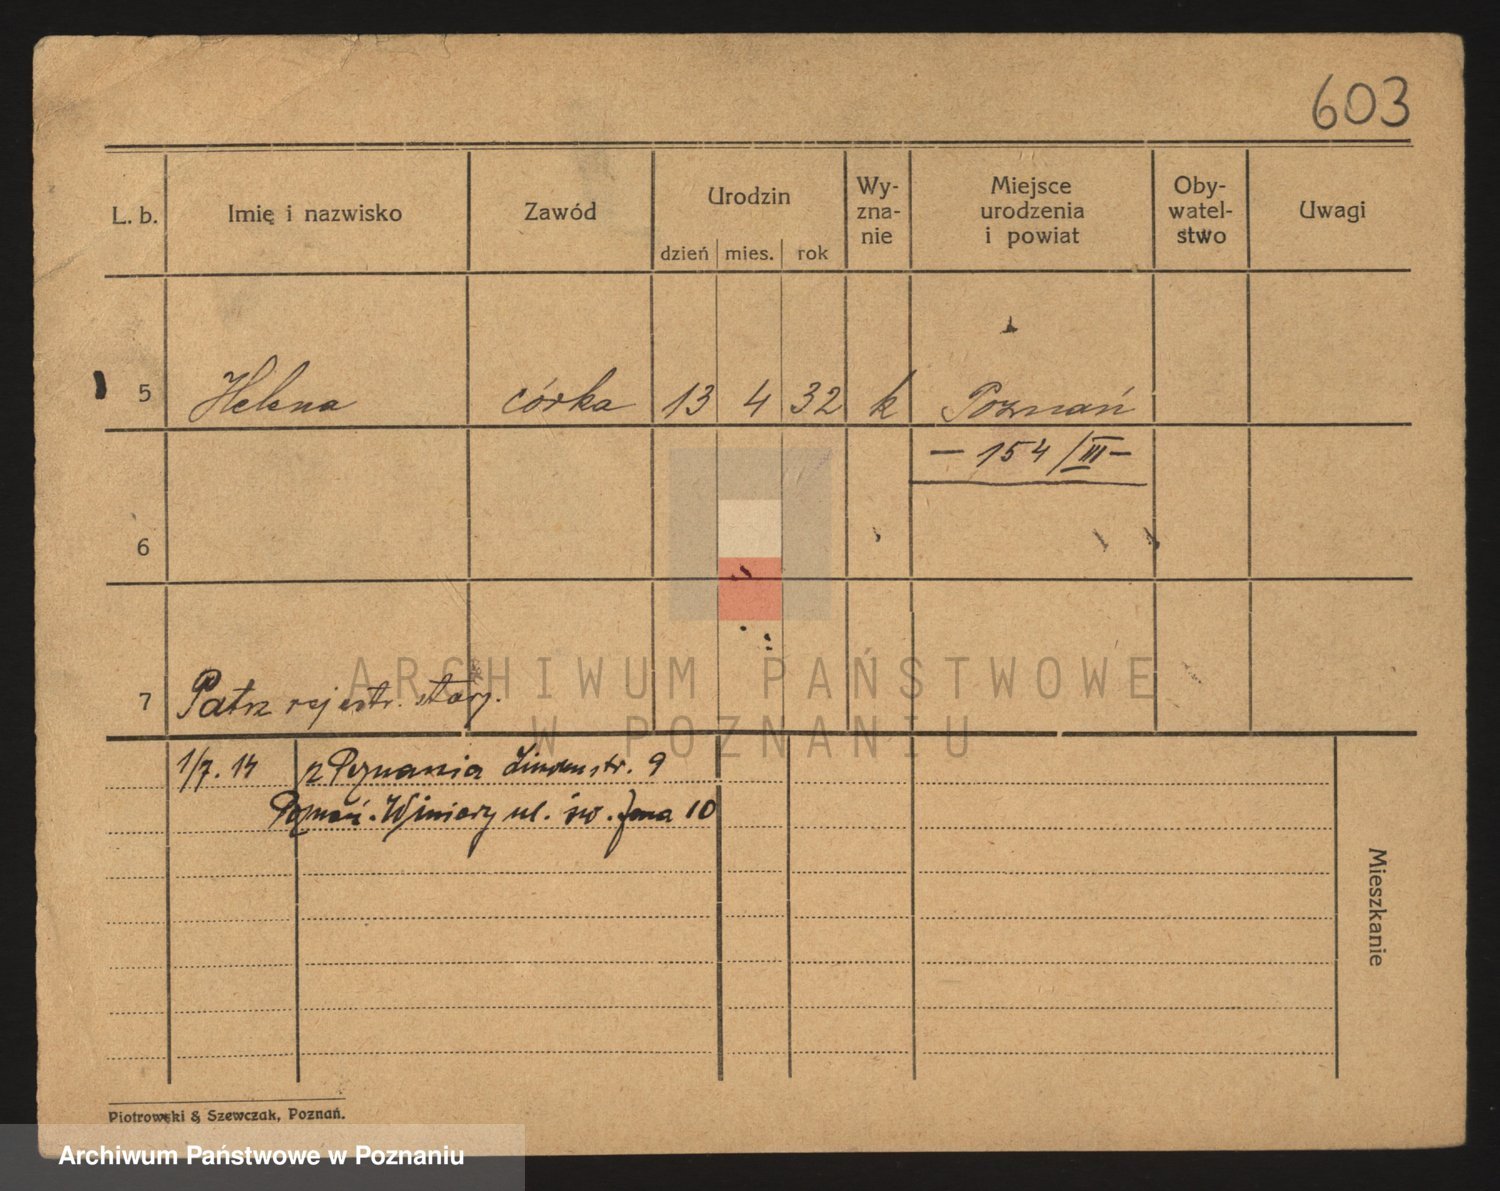 603
L. b. Imię i nazwisko Zawód Urodzin dzień mies. rok Wy-zna-nie Miejsce urodzenia i powiat Oby-watel-stwo Uwagi
5 Helena córka 13 4 32 k Poznań
— 154/III —
6
ARCHIWUM PAŃSTWOWE
7 Patrz rejestr. starz.
W POZNANIU
1/7. 14 z Poznania Lindenstr. 9
Poznań. Winiary ul. św. 10
Mieszkanie
Piotrowski & Szewczak, Poznań.
Archiwum Państwowe w Poznaniu